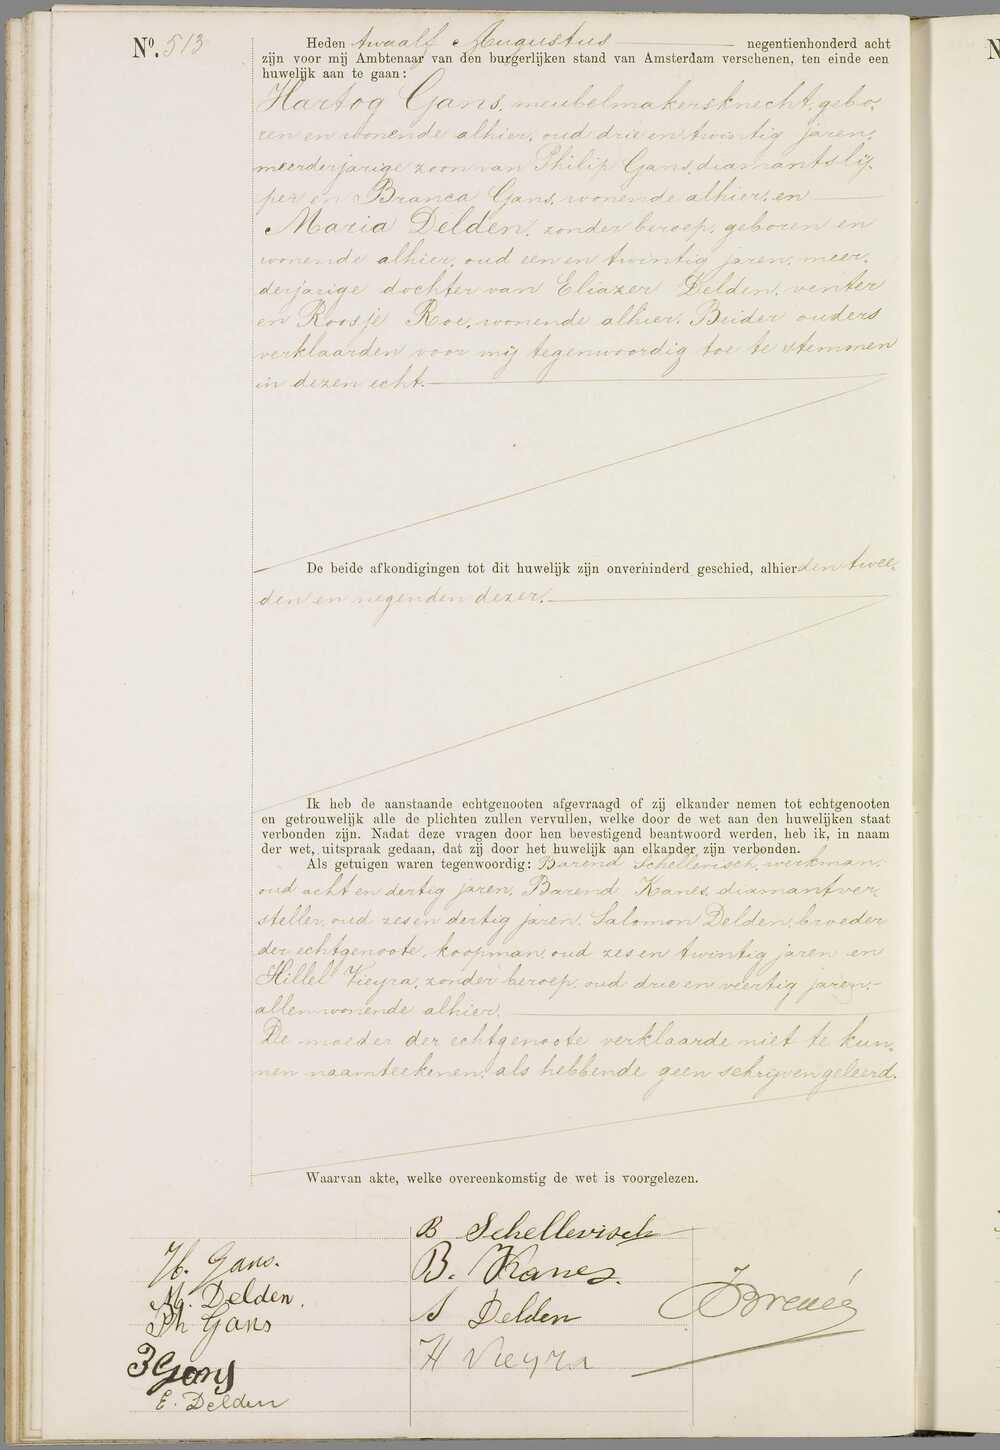 No. 513
Heden twaalf Augustus negentienhonderd acht
zijn voor mij Ambtenaar van den burgerlijken stand van Amsterdam verschenen, ten einde een
huwelijk aan te gaan:
Hartog Gans, meubelmakersknecht, gebo-
ren en wonende alhier, oud drie en twintig jaren,
meerderjarige zoon van Philip Gans, diamantslij-
per en Branca Gans, wonende alhier, en
Maria Delden, zonder beroep, geboren en
wonende alhier, oud een en twintig jaren, meer-
derjarige dochter van Eliazer Delden, venter
en Roosje Roe, wonende alhier. Beider ouders
verklaarden voor mij tegenwoordig toe te stemmen
in dezen echt.
De beide afkondigingen tot dit huwelijk zijn onverhinderd geschied, alhier den twee-
den en negenden dezer.
Ik heb de aanstaande echtgenooten afgevraagd of zij elkander nemen tot echtgenooten
en getrouwelijk alle de plichten zullen vervullen, welke door de wet aan den huwelijken staat
verbonden zijn. Nadat deze vragen door hen bevestigend beantwoord werden, heb ik, in naam
der wet, uitspraak gedaan, dat zij door het huwelijk aan elkander zijn verbonden.
Als getuigen waren tegenwoordig: Barend Schellevisch, werkman,
oud acht en dertig jaren, Barend Kanes, diamantver-
steller, oud zes en dertig jaren, Salomon Delden, broeder
der echtgenoote, koopman, oud zes en twintig jaren en
Hillel Vieyra, zonder beroep, oud drie en veertig jaren,-
allen wonende alhier.
De moeder der echtgenoote verklaarde niet te kun-
nen naamteekenen, als hebbende geen schrijven geleerd.
Waarvan akte, welke overeenkomstig de wet is voorgelezen.
B Schellevisch
H. Gans.
B. Kanes.
M. Delden.
S Delden
Ph Gans
H Vieyra
B Gans
E. Delden